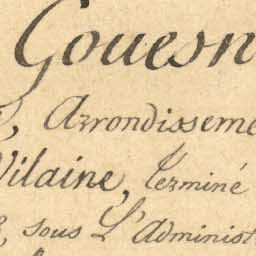 Gouesn
, Arrondisseme
Vilaine, terminé
, sous L'Administ